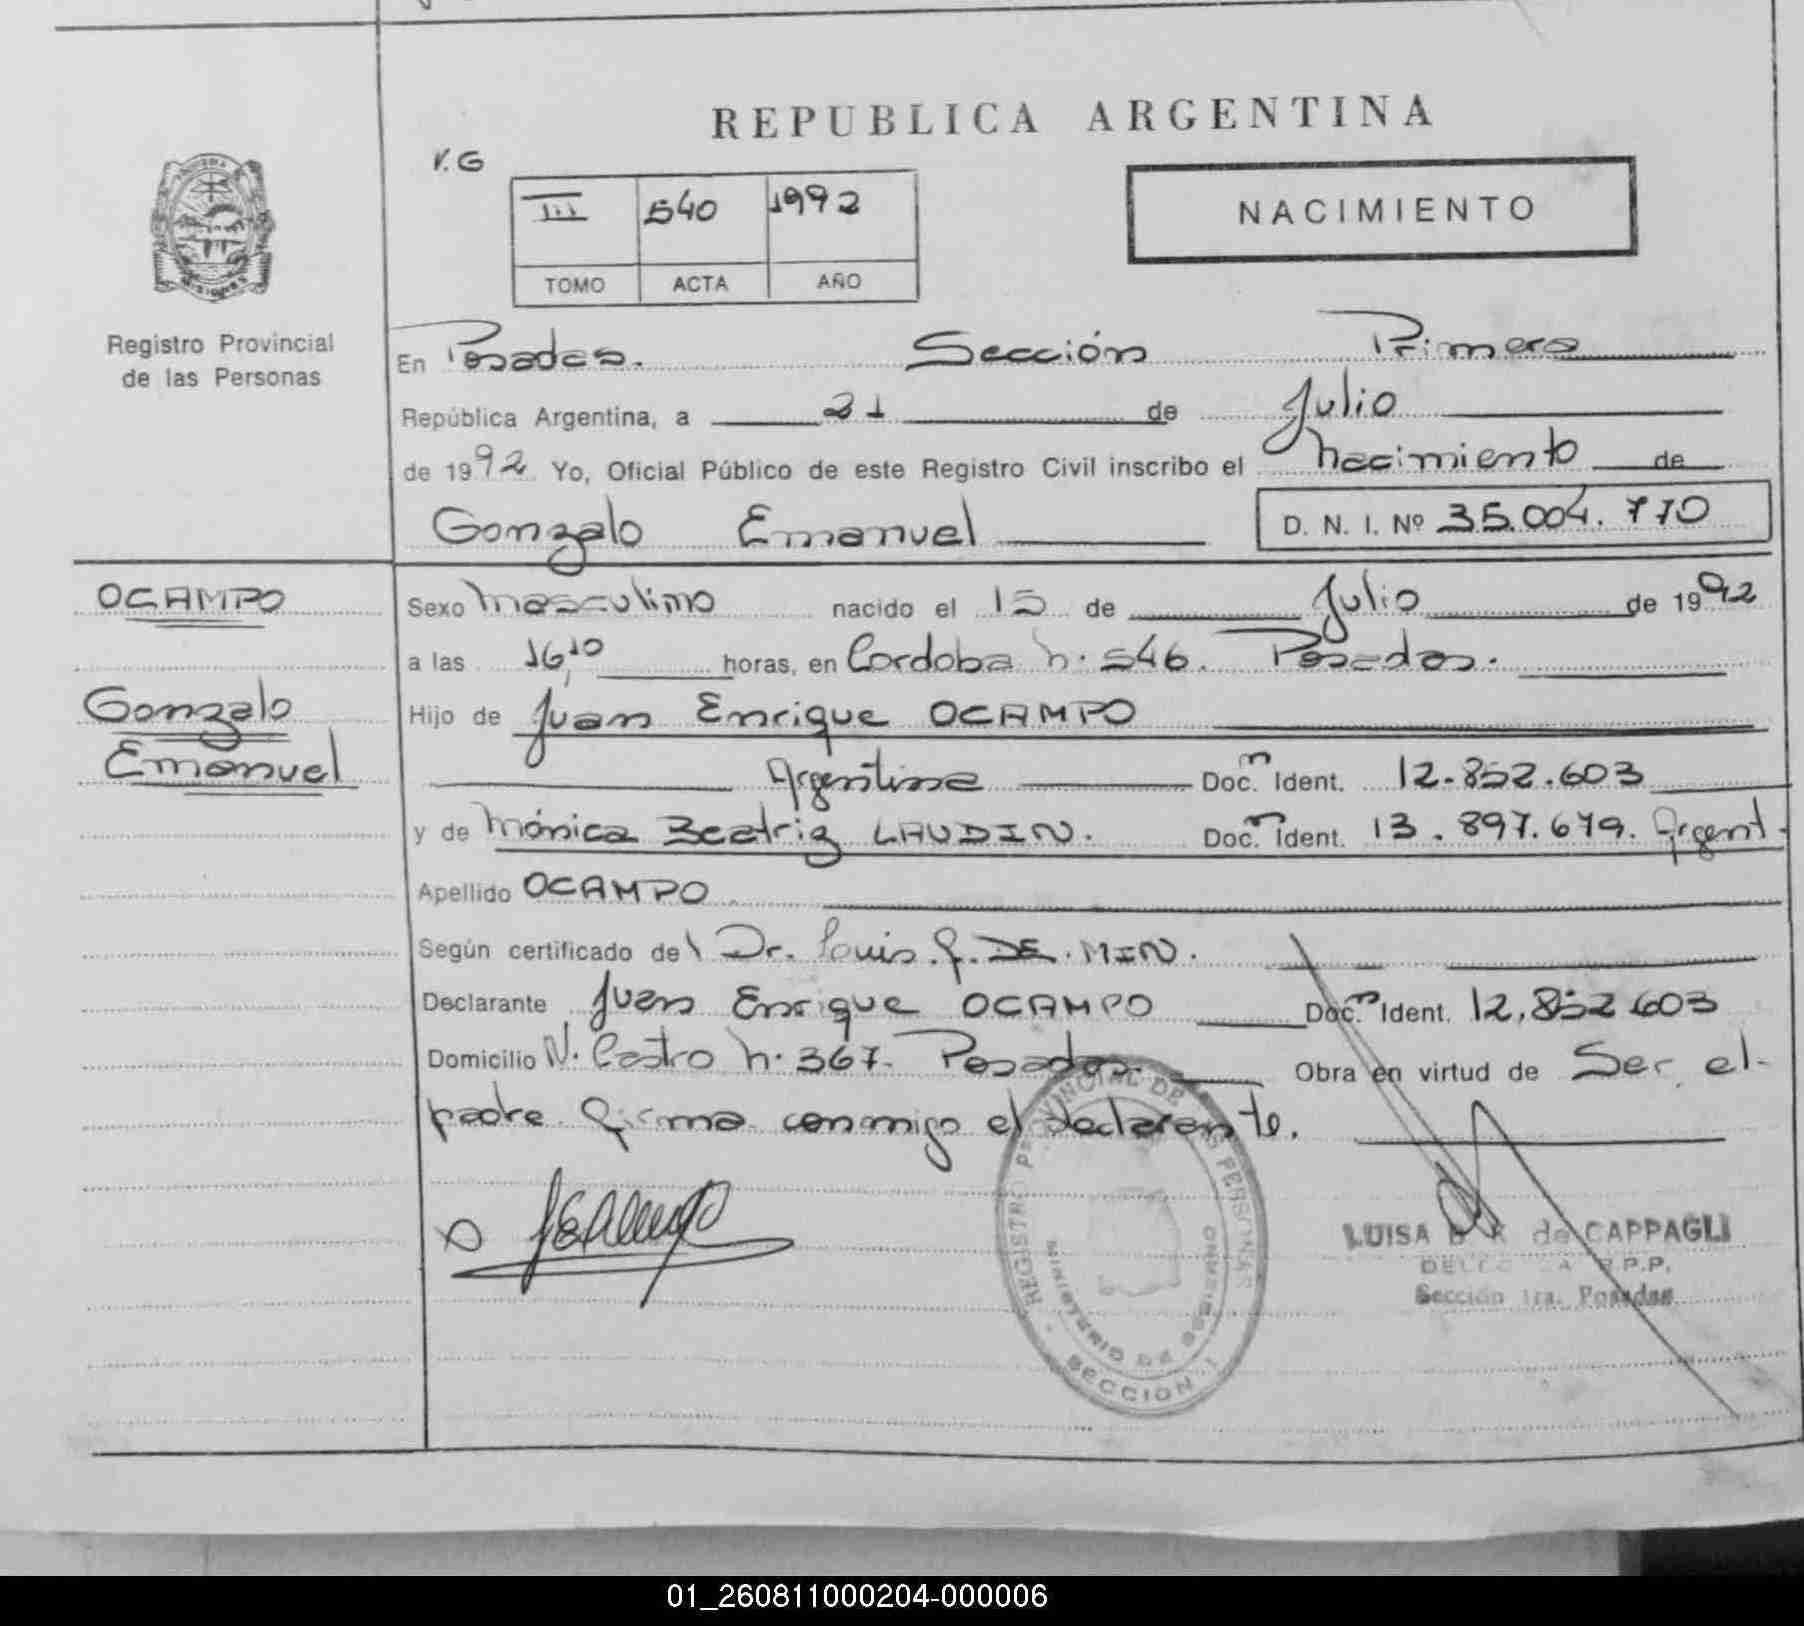 REPUBLICA ARGENTINA
V.G
III 540 1992
TOMO ACTA AÑO
NACIMIENTO
Registro Provincial
de las Personas
En Posadas. Sección Primera
República Argentina, a 21 de Julio
de 1992 Yo, Oficial Público de este Registro Civil inscribo el Nacimiento de
Gonzalo Emanuel D. N. I. Nº 35.004.770
OCAMPO
Gonzalo
Emanuel
Sexo Masculino nacido el 15 de Julio de 1992
a las 16,10 horas, en Cordoba n. 546. Posadas.
Hijo de Juan Enrique OCAMPO
Argentina Doc. Ident. 12.852.603
y de Mónica Beatriz LAUDIN. Doc. Ident. 13.897.679. Argent.
Apellido OCAMPO
Según certificado del Dr. Louis. J. DE. MIN.
Declarante Juan Enrique OCAMPO Doc. Ident. 12.852.603
Domicilio N. Castro n. 367. Posadas. Obra en virtud de Ser el
padre firma conmigo el declarante.
REGISTRO PROVINCIAL DE LAS PERSONAS
MINISTERIO DE GOBIERNO
SECCION 1
LUISA de CAPPAGLI
R.P.P.
Sección 1ra. Posadas
01_260811000204-000006